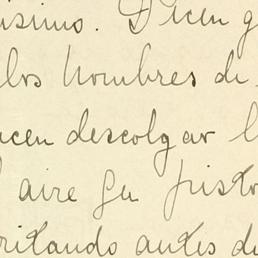 isimo. Dicen q
los hombres de
acen descolgar l
aire su pisto
ritando antes de